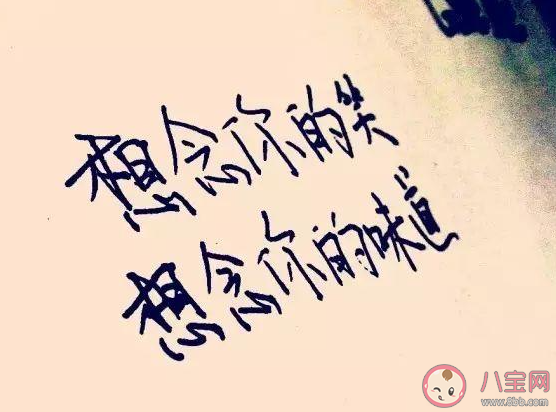 想念你的笑
想念你的味道
八宝网
www.8bb.com